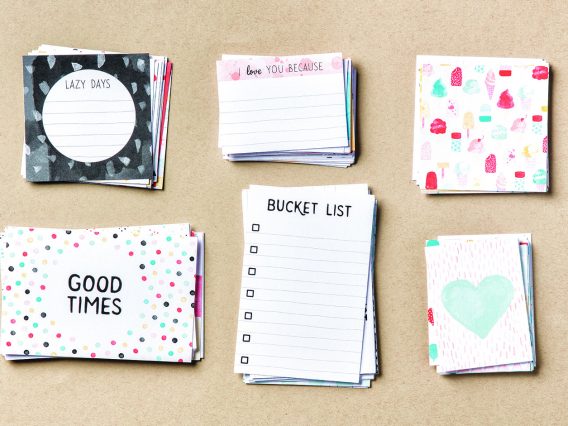 LAZY DAYS
I love YOU BECAUSE
GOOD
TIMES
BUCKET LIST